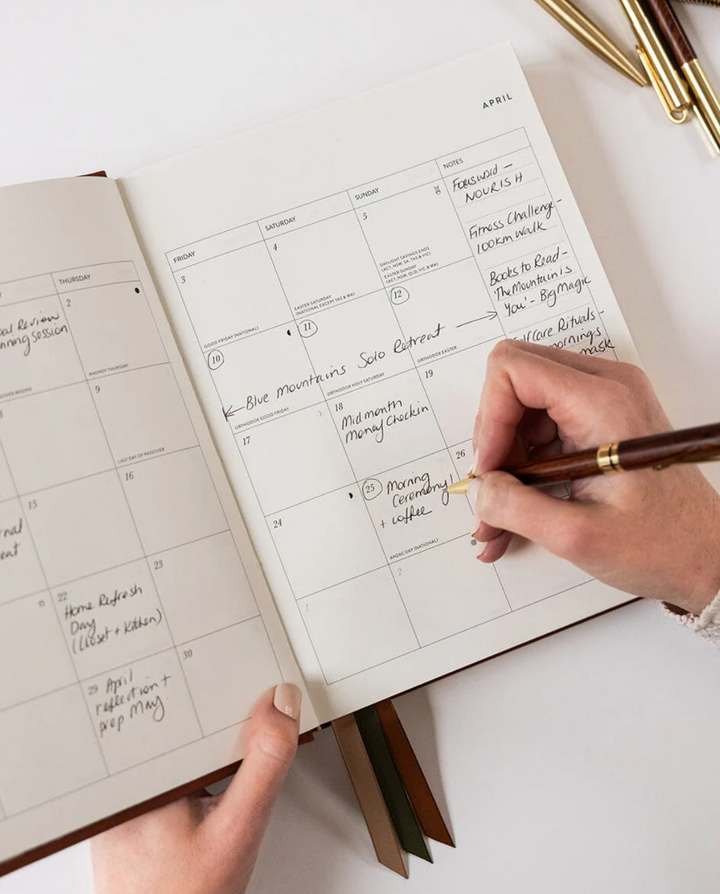 APRIL
THURSDAY
FRIDAY
SATURDAY
SUNDAY
NOTES
2
MAUNDY THURSDAY
3
GOOD FRIDAY (NATIONAL)
4
EASTER SATURDAY
(NATIONAL EXCEPT TAS & WA)
5
DAYLIGHT SAVINGS ENDS
(ACT, NSW, SA, TAS & VIC)
EASTER SUNDAY
(ACT, NSW, QLD, VIC & WA)
Focus word -
NOURISH
Fitness Challenge -
100km walk
Books to Read -
'The Mountain is
You' - Big Magic
Self Care Rituals -
mask
Review
session
9
LAST DAY OF PASSOVER
10
11
12
Blue Mountains Solo Retreat
ORTHODOX GOOD FRIDAY
ORTHODOX HOLY SATURDAY
ORTHODOX EASTER
15
16
17
18
Mid month
Money Checkin
19
22
Home Refresh
Day
(Closet + Kitchen)
23
24
25
Morning
Ceremony
+ coffee
ANZAC DAY (NATIONAL)
26
29
April
reflection +
prep May.
30
1
2